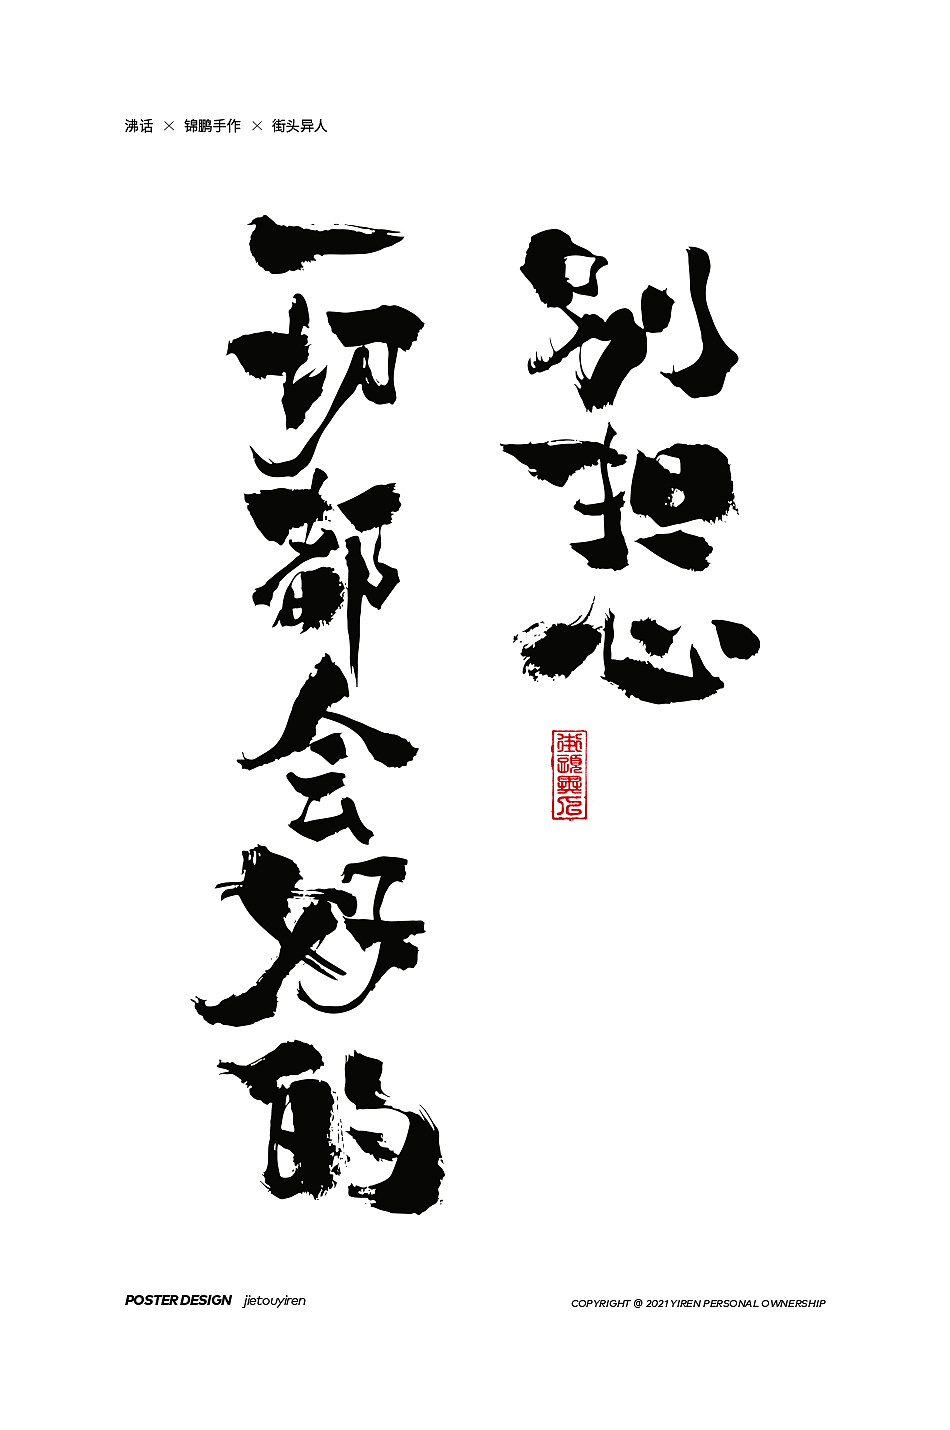 沸话 × 锦鹏手作 × 街头异人
别担心
一切都会好的
街頭異人
POSTER DESIGN jietouyiren
COPYRIGHT @ 2021 YIREN PERSONAL OWNERSHIP